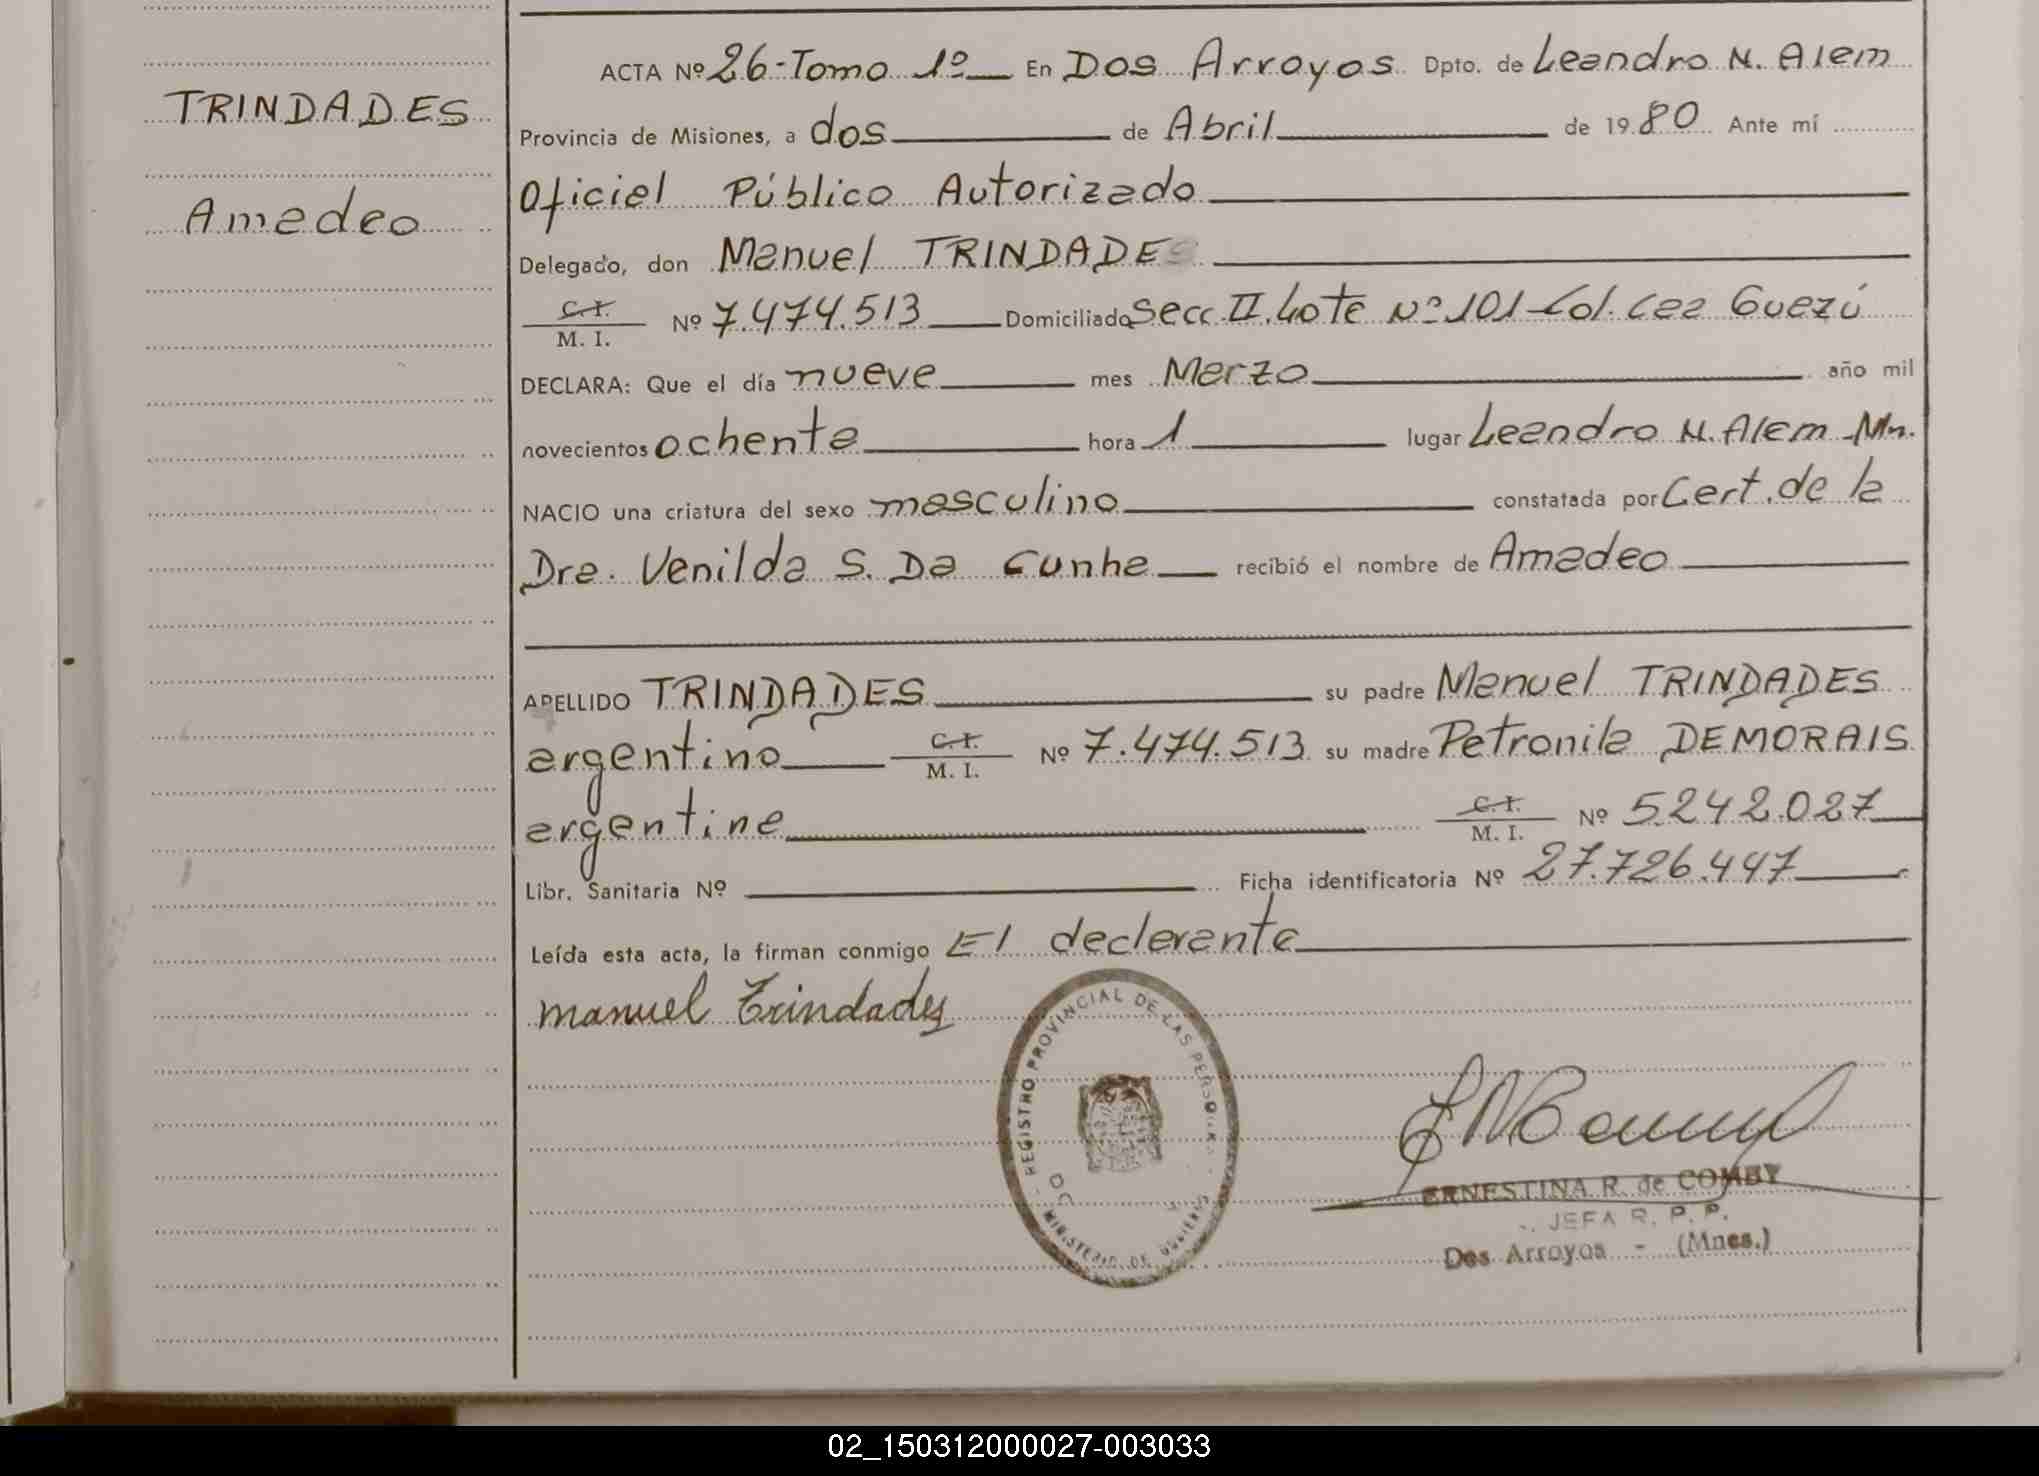 TRINDADES
Amadeo
ACTA Nº 26-Tomo 1º En Dos Arroyos Dpto. de Leandro N. Alem
Provincia de Misiones, a dos de Abril de 1980 Ante mí
Oficial Público Autorizado
Delegado, don Manuel TRINDADES
C.I. M. I. Nº 7.474.513 Domiciliado Secc. II. Lote Nº 101-Col. Caa Guazú
DECLARA: Que el día nueve mes Marzo año mil
novecientos ochenta hora 1 lugar Leandro N. Alem -Mn.
NACIO una criatura del sexo masculino constatada por Cert. de la
Dra. Venilda S. Da Cunha recibió el nombre de Amadeo
APELLIDO TRINDADES su padre Manuel TRINDADES
argentino C.I. M. I. Nº 7.474.513 su madre Petronila DEMORAIS
argentina C.I. M. I. Nº 5.242.027
Libr. Sanitaria Nº Ficha identificatoria Nº 27.726.447
Leída esta acta, la firman conmigo El declarante
manuel Trindades
REGISTRO PROVINCIAL DE LAS PERSONAS
MINISTERIO DE GOBIERNO
ERNESTINA R. de COMBY
JEFA R. P. P.
Dos Arroyos - (Mnes.)
02_150312000027-003033